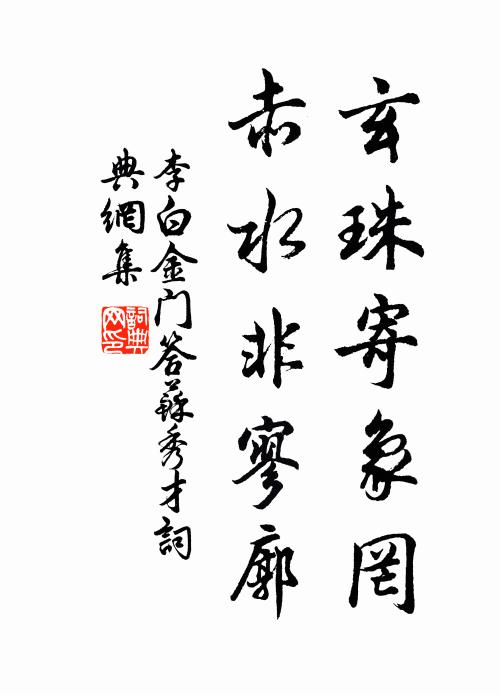 玄珠寄象罔
赤水非寥廓
李白金门答蘇秀才詞
典網集
詞典网印